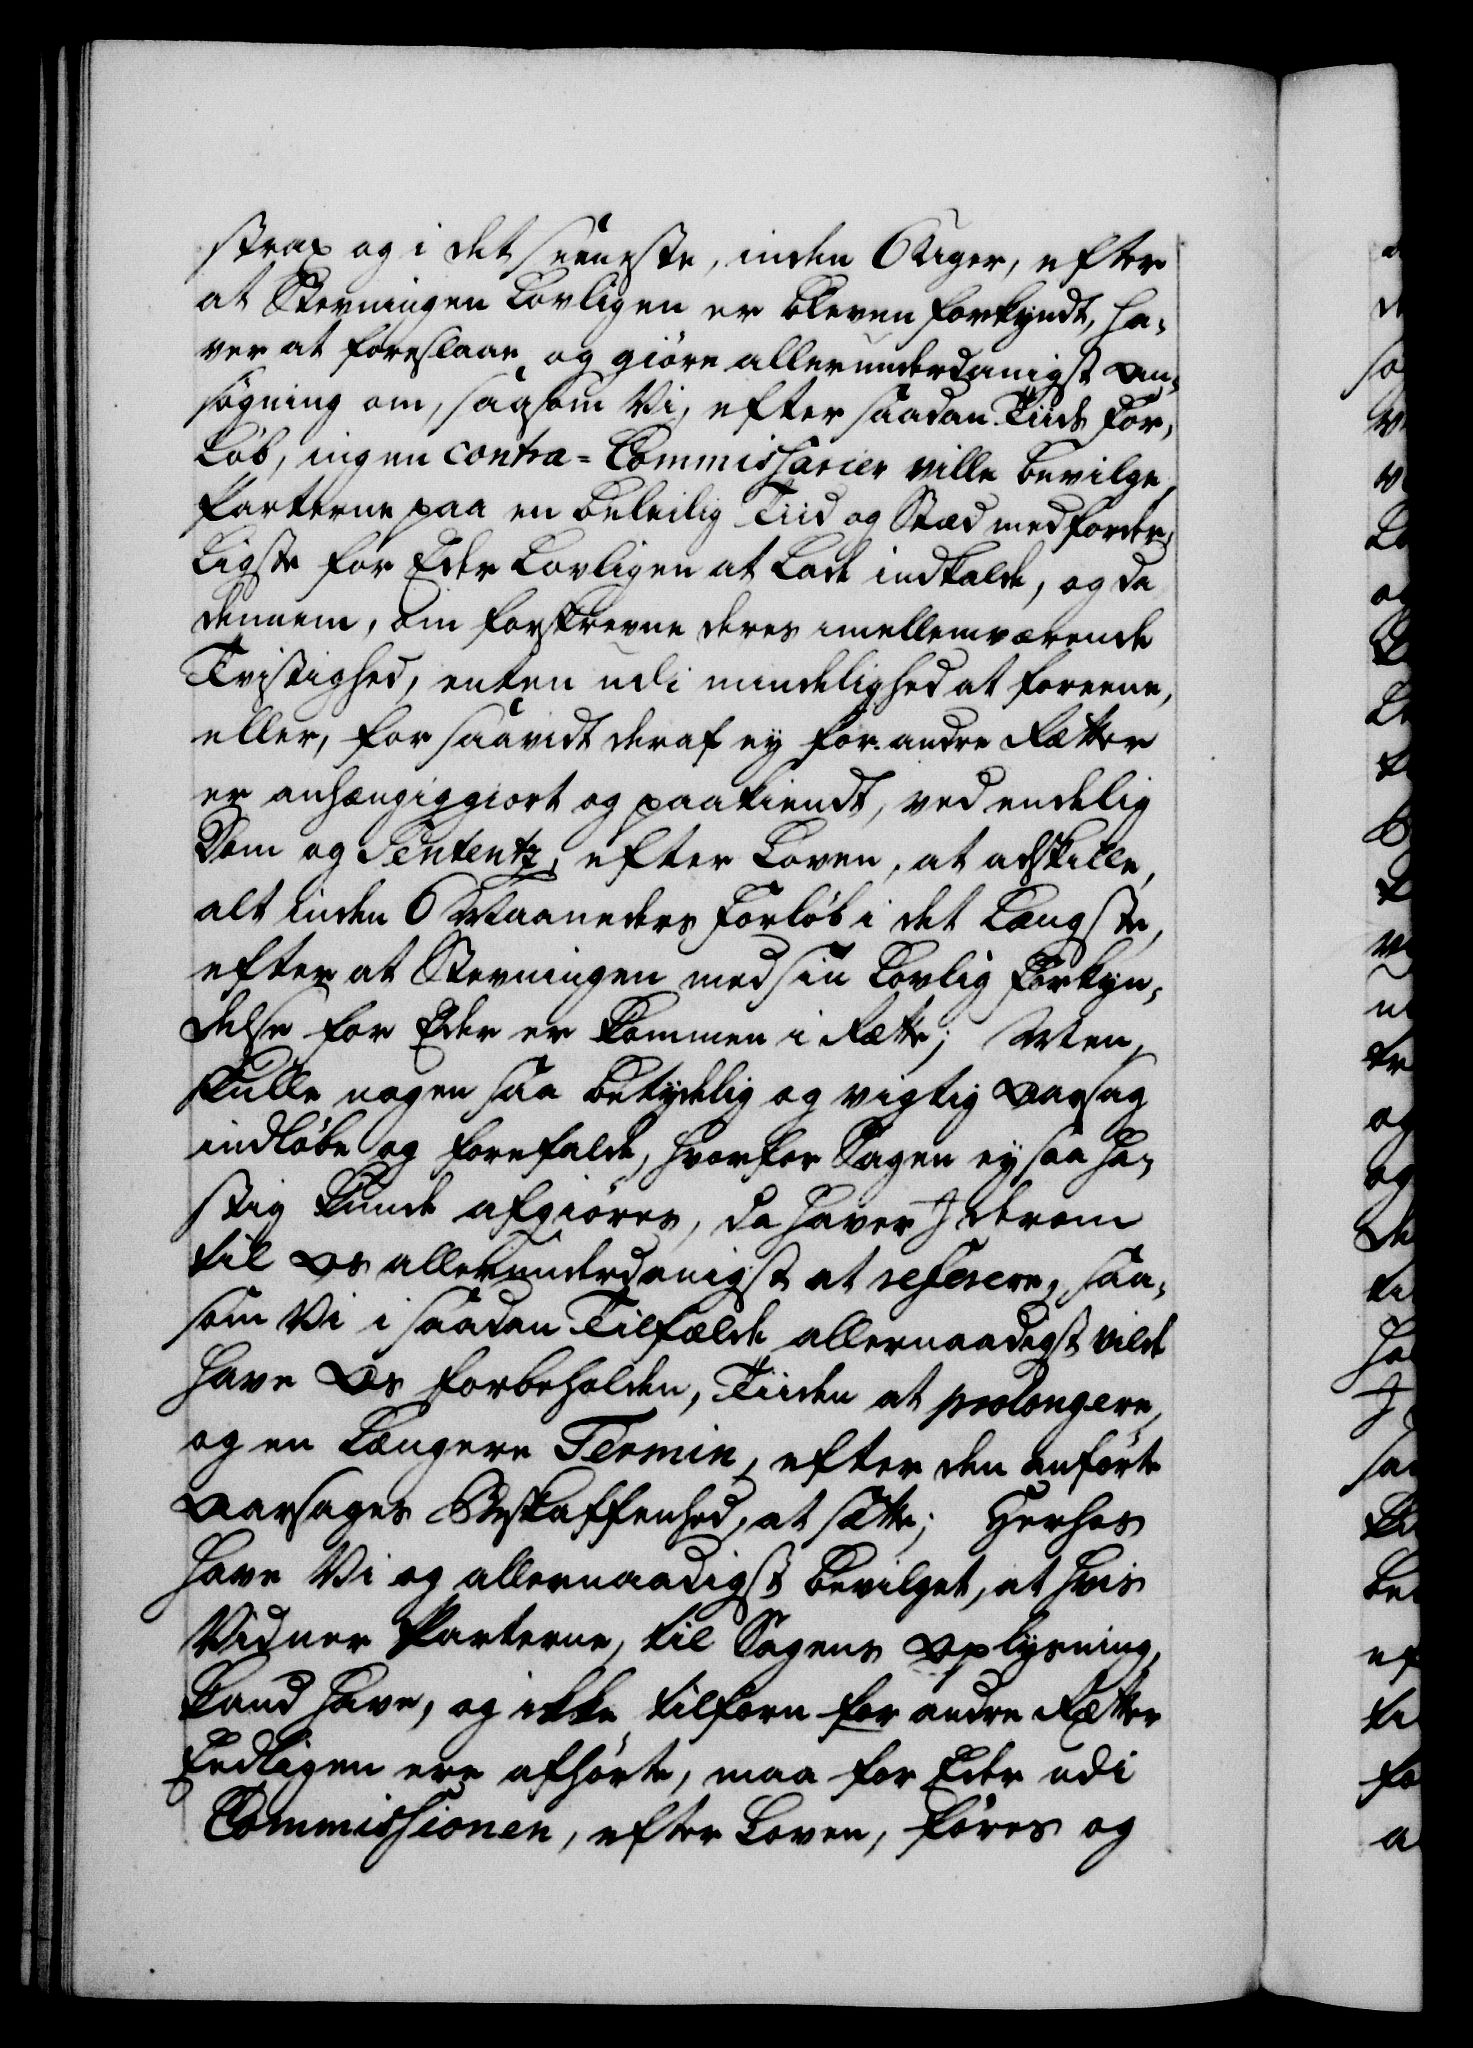 strax og i det seeneste, inden 6 Uger, efter
at Stevningen Lovligen er bleven forkyndt, ha-
ver at foreslaae, og giøre allerunderdanigst An-
søgning om, saasom Vi, efter saadan Tiids For-
løb, ingen contra-Commissarier ville bevilge,
Parterne paa en beleilig Tiid og Stæd med forder-
ligste for Eder Lovligen at lade indkalde, og da
dennem, om forskrevne deres imellemværende
Tvistighed, enten udi mindelighed at foreene,
eller, for saavidt deraf ey for andre Rætter
er anhængiggiort og paakiendt, ved endelig
Dom og Sententz, efter Loven, at adskille,
alt inden 6 Maaneders Forløb i det Længste,
efter at Stevningen med sin Lovlig Forkyn-
delse for Eder er kommen i Rætte; Men,
skulle nogen saa betydelig og vigtig Aarsag
indløbe og forefalde, hvorfor Sagen ey saa ha-
stig kunde afgiøres, da haver I derom
til Os allerunderdanigst at referere, saa-
som Vi i saadan Tilfælde allernaadigst vilde
have Os forbeholden, Tiiden at prolongere,
og en Længere Termin, efter den anførte
Aarsages Beskaffenhed, at sætte; Herhos
have Vi og allernaadigst bevilget, at hvis
Vidner Parterne, til Sagens Oplysning,
kand have, og ikke tilforn for andre Rætter
Eedligen ere afhørte, maa for Eder udi
Commissionen, efter Loven, føres og